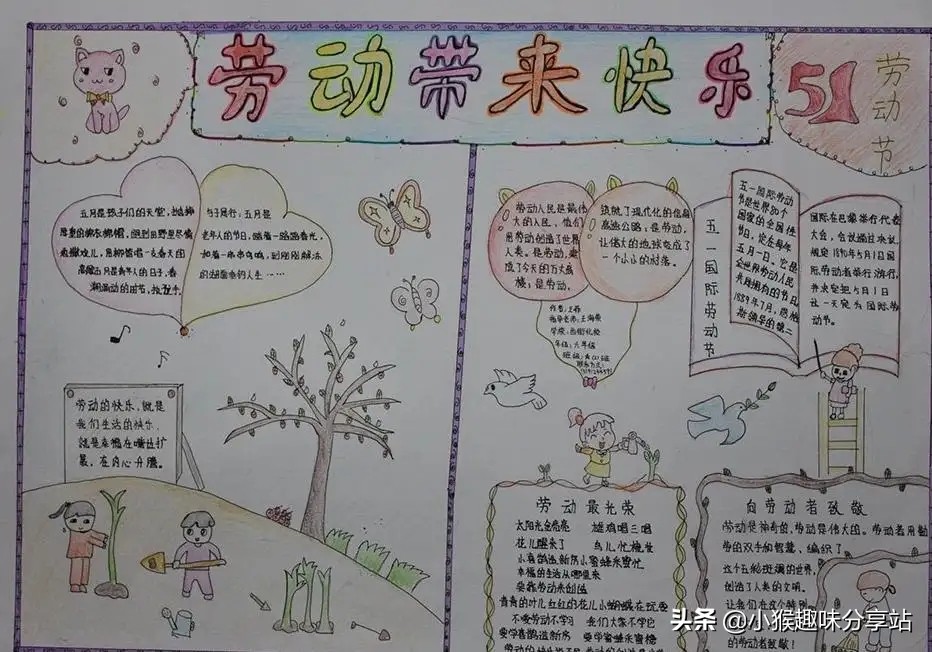 劳动带来快乐
51
劳动节
五月是孩子们的天堂,
与子同行;五月是
老年人的节日,
劳动的快乐,就是
我们生活的快乐.
就是幸福在嘴边扩
展,在内心升腾。
劳动人民是最伟
大的人民,他们
用劳动创造了世界
人类。是劳动,建
成了今天的万丈高
楼;是劳动,
筑就了现代化的信息
高速公路,是劳动,
让伟大的地球变成了
一个小小的村落。
五一国际劳动节
五一国际劳动
节是世界80个
国家的全国性
节日。定在每年
五月一日。它是
全世界劳动人民
共同拥有的节日
1889年7月,恩格
斯领导的第二
国际在巴黎举行代表
大会,会议通过决议
规定1890年5月1日国
际劳动者举行游行,
并决定把5月1日
这一天定为国际劳
动节。
劳动最光荣
太阳光金亮亮 雄鸡唱三唱
花儿醒来了 鸟儿忙梳妆
小喜鹊造新房 小蜜蜂采蜜忙
幸福的生活从哪里来
要靠劳动来创造
青青的叶儿红红的花儿小蝴蝶在玩耍
不爱劳动不学习 我们大家不学它
要学喜鹊造新房 要学蜜蜂采蜜糖
向劳动者致敬
劳动是神奇的,劳动是伟大的。劳动者用勤
劳的双手和智慧,编织了
这个五彩斑斓的世界,
创造了人类的文明。
让我们在这个特别
的劳动者致敬!
头条 @小猴趣味分享站